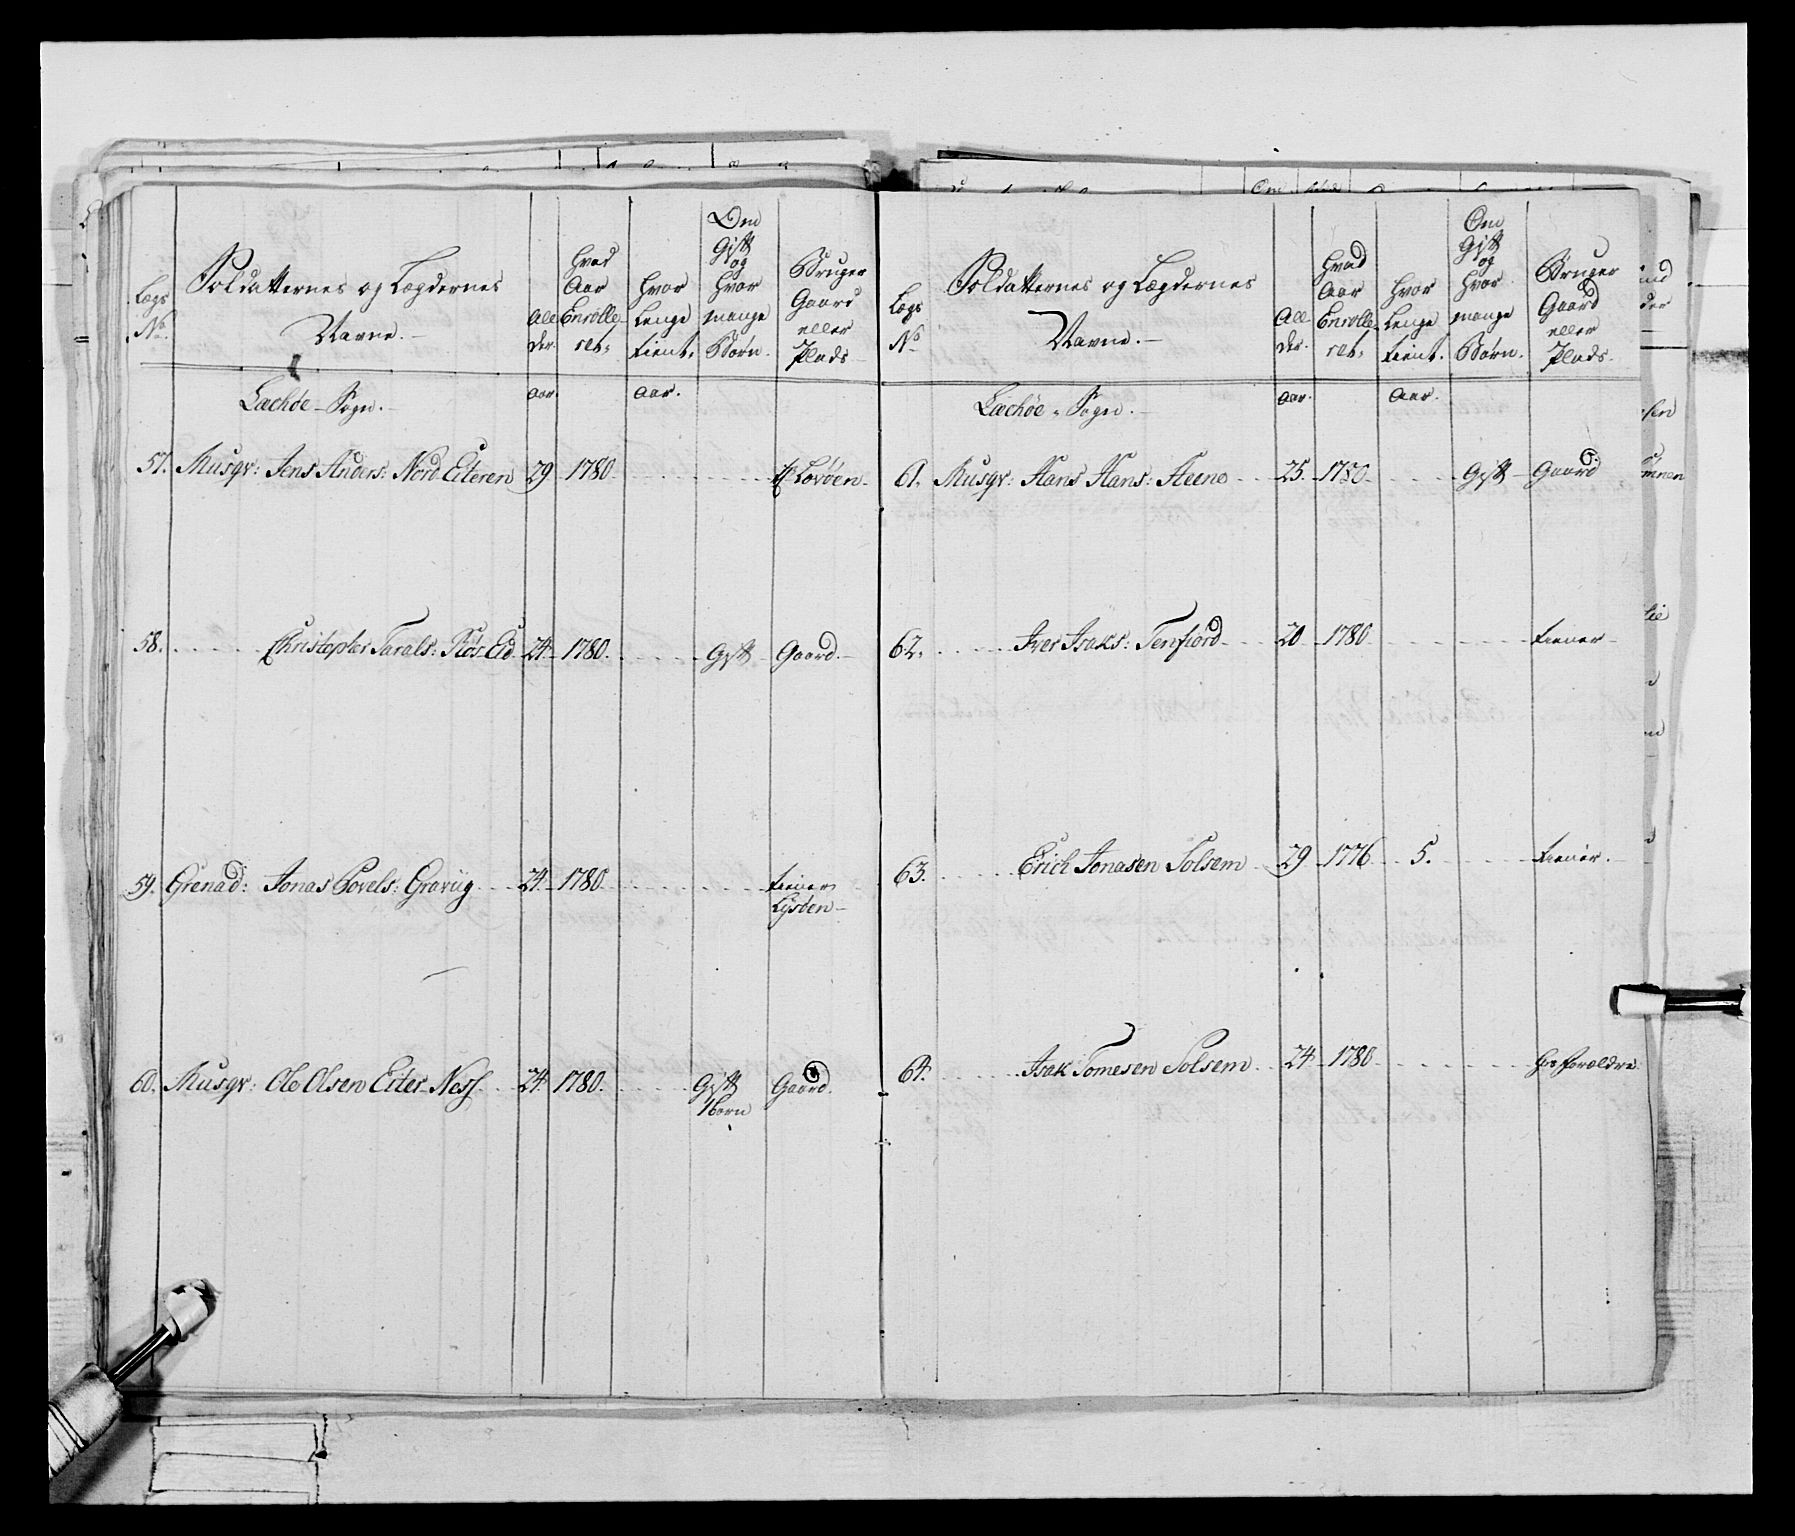 Lægs No. Soldatternes og Lægdernes Navne. Alder. Hvad Aar Enrolleret, Hvor Lenge tient, Om Gift og Hvor mange Børn. Bruger Gaard eller Plads
Leckøe Sogn. Aar. Aar.
57. Musqv: Jens Anders: Nord Eiteren 29 1780 Løvøen
58. Christopher Tarals: Røs Eid 24 1780. Gift Gaard.
59. Grenad: Jonas Povels: Graviig 24 1780 tiener
Lysøen
60. Musqv: Ole Olsen Eiter Ness 24 1780. Gift Gaard.
1 barn
Lægs No Soldatternes og Lægdernes Navne. Alder. Hvad Aar Enrolleret, Hvor Lenge tient. Om Gift og Hvor mange Børn. Bruger Gaard eller Plads.
Leckøe Sogn. Aar. Aar.
61. Musqv: Hans Hans: Steene 25 1780 Gift Gaard
62. Iver Isaks: Tenfiord 20 1780 tiener
63. Erich Jonasen Solsem 29 1776 5. tiener.
64. Isak Tomesen Solsem 24 1780 hos forældre